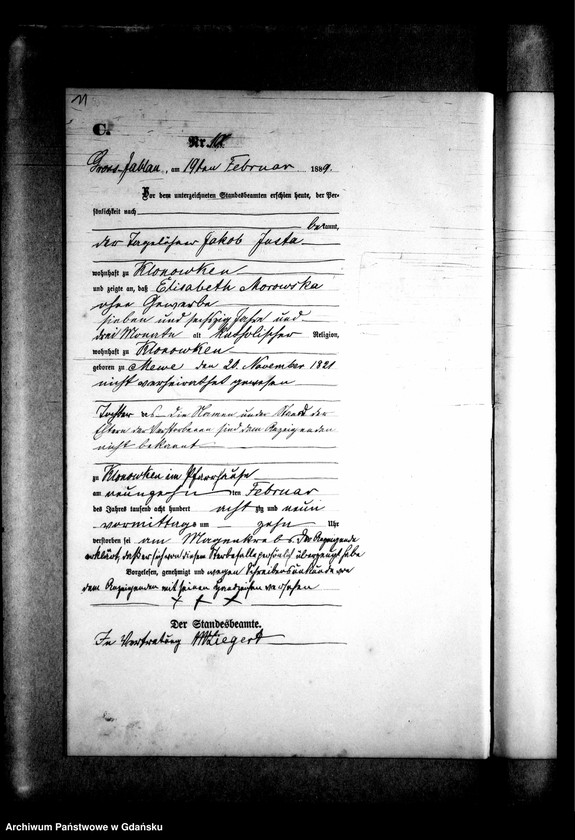 11
C.
Nr.
Gross-Jablau, am 19ten Februar 1889.
Vor dem unterzeichneten Standesbeamten erschien heute, der Per-
sönlichkeit nach
bekannt,
der Tagelöhner Jakob Justa
wohnhaft zu Klonowken
und zeigte an, daß Elisabeth Morowska
ohne Gewerbe
sieben und sechszig Jahre und
drei Monate alt katholischer Religion,
wohnhaft zu Klonowken
geboren zu Mewe den 20. November 1821
nicht verheirathet gewesen
Tochter der Die Namen und der Stand der
Eltern der Verstorbenen sind dem Anzeigenden
nicht bekannt
zu Klonowken im Pfarrhause
am neunzehnten Februar
des Jahres tausend acht hundert achtzig und neun
vormittags um zehn Uhr
verstorben sei am Magenkrebs. Der Anzeigende
erklärt, daß er sich von diesem Sterbefalle persönlich überzeugt habe
Vorgelesen, genehmigt und wegen Schreibensunkunde von
dem Anzeigenden mit seinen Handzeichen versehen
+ + +
Der Standesbeamte.
In Vertretung Wiegert
Archiwum Państwowe w Gdańsku